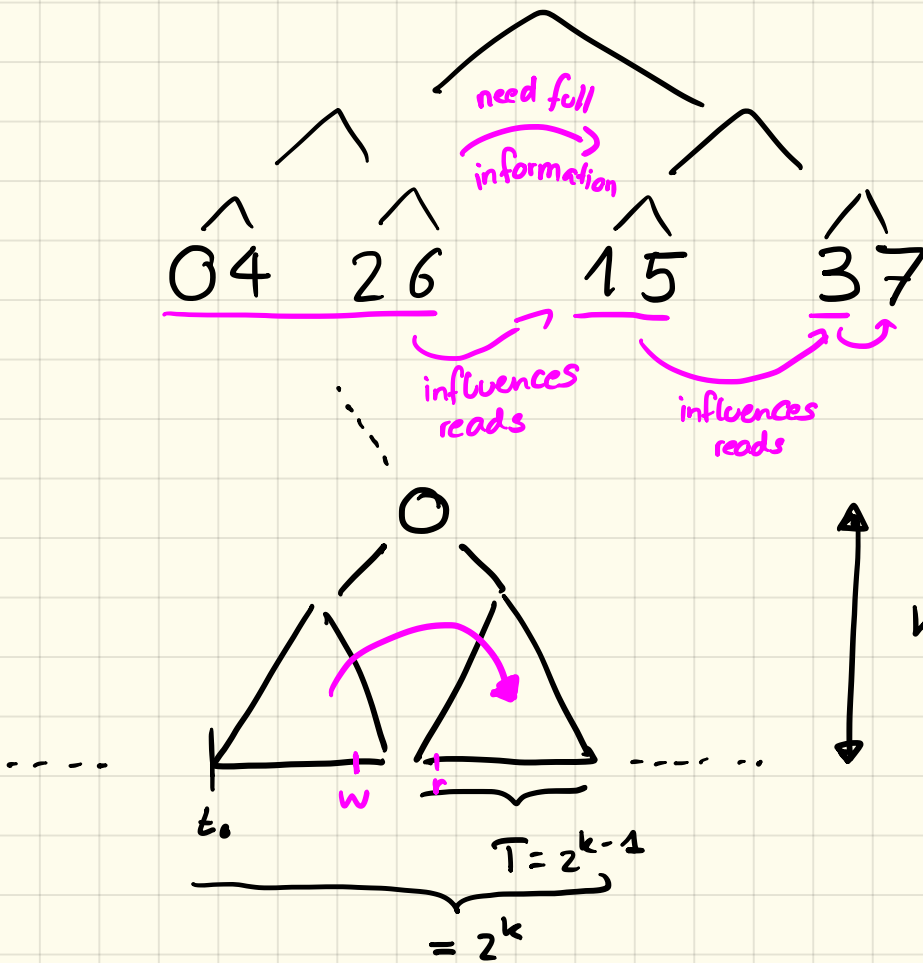 need full
information
04 26 15 37
influences
reads
influences
reads
w r
t₀
T = 2^{k-1}
= 2^k